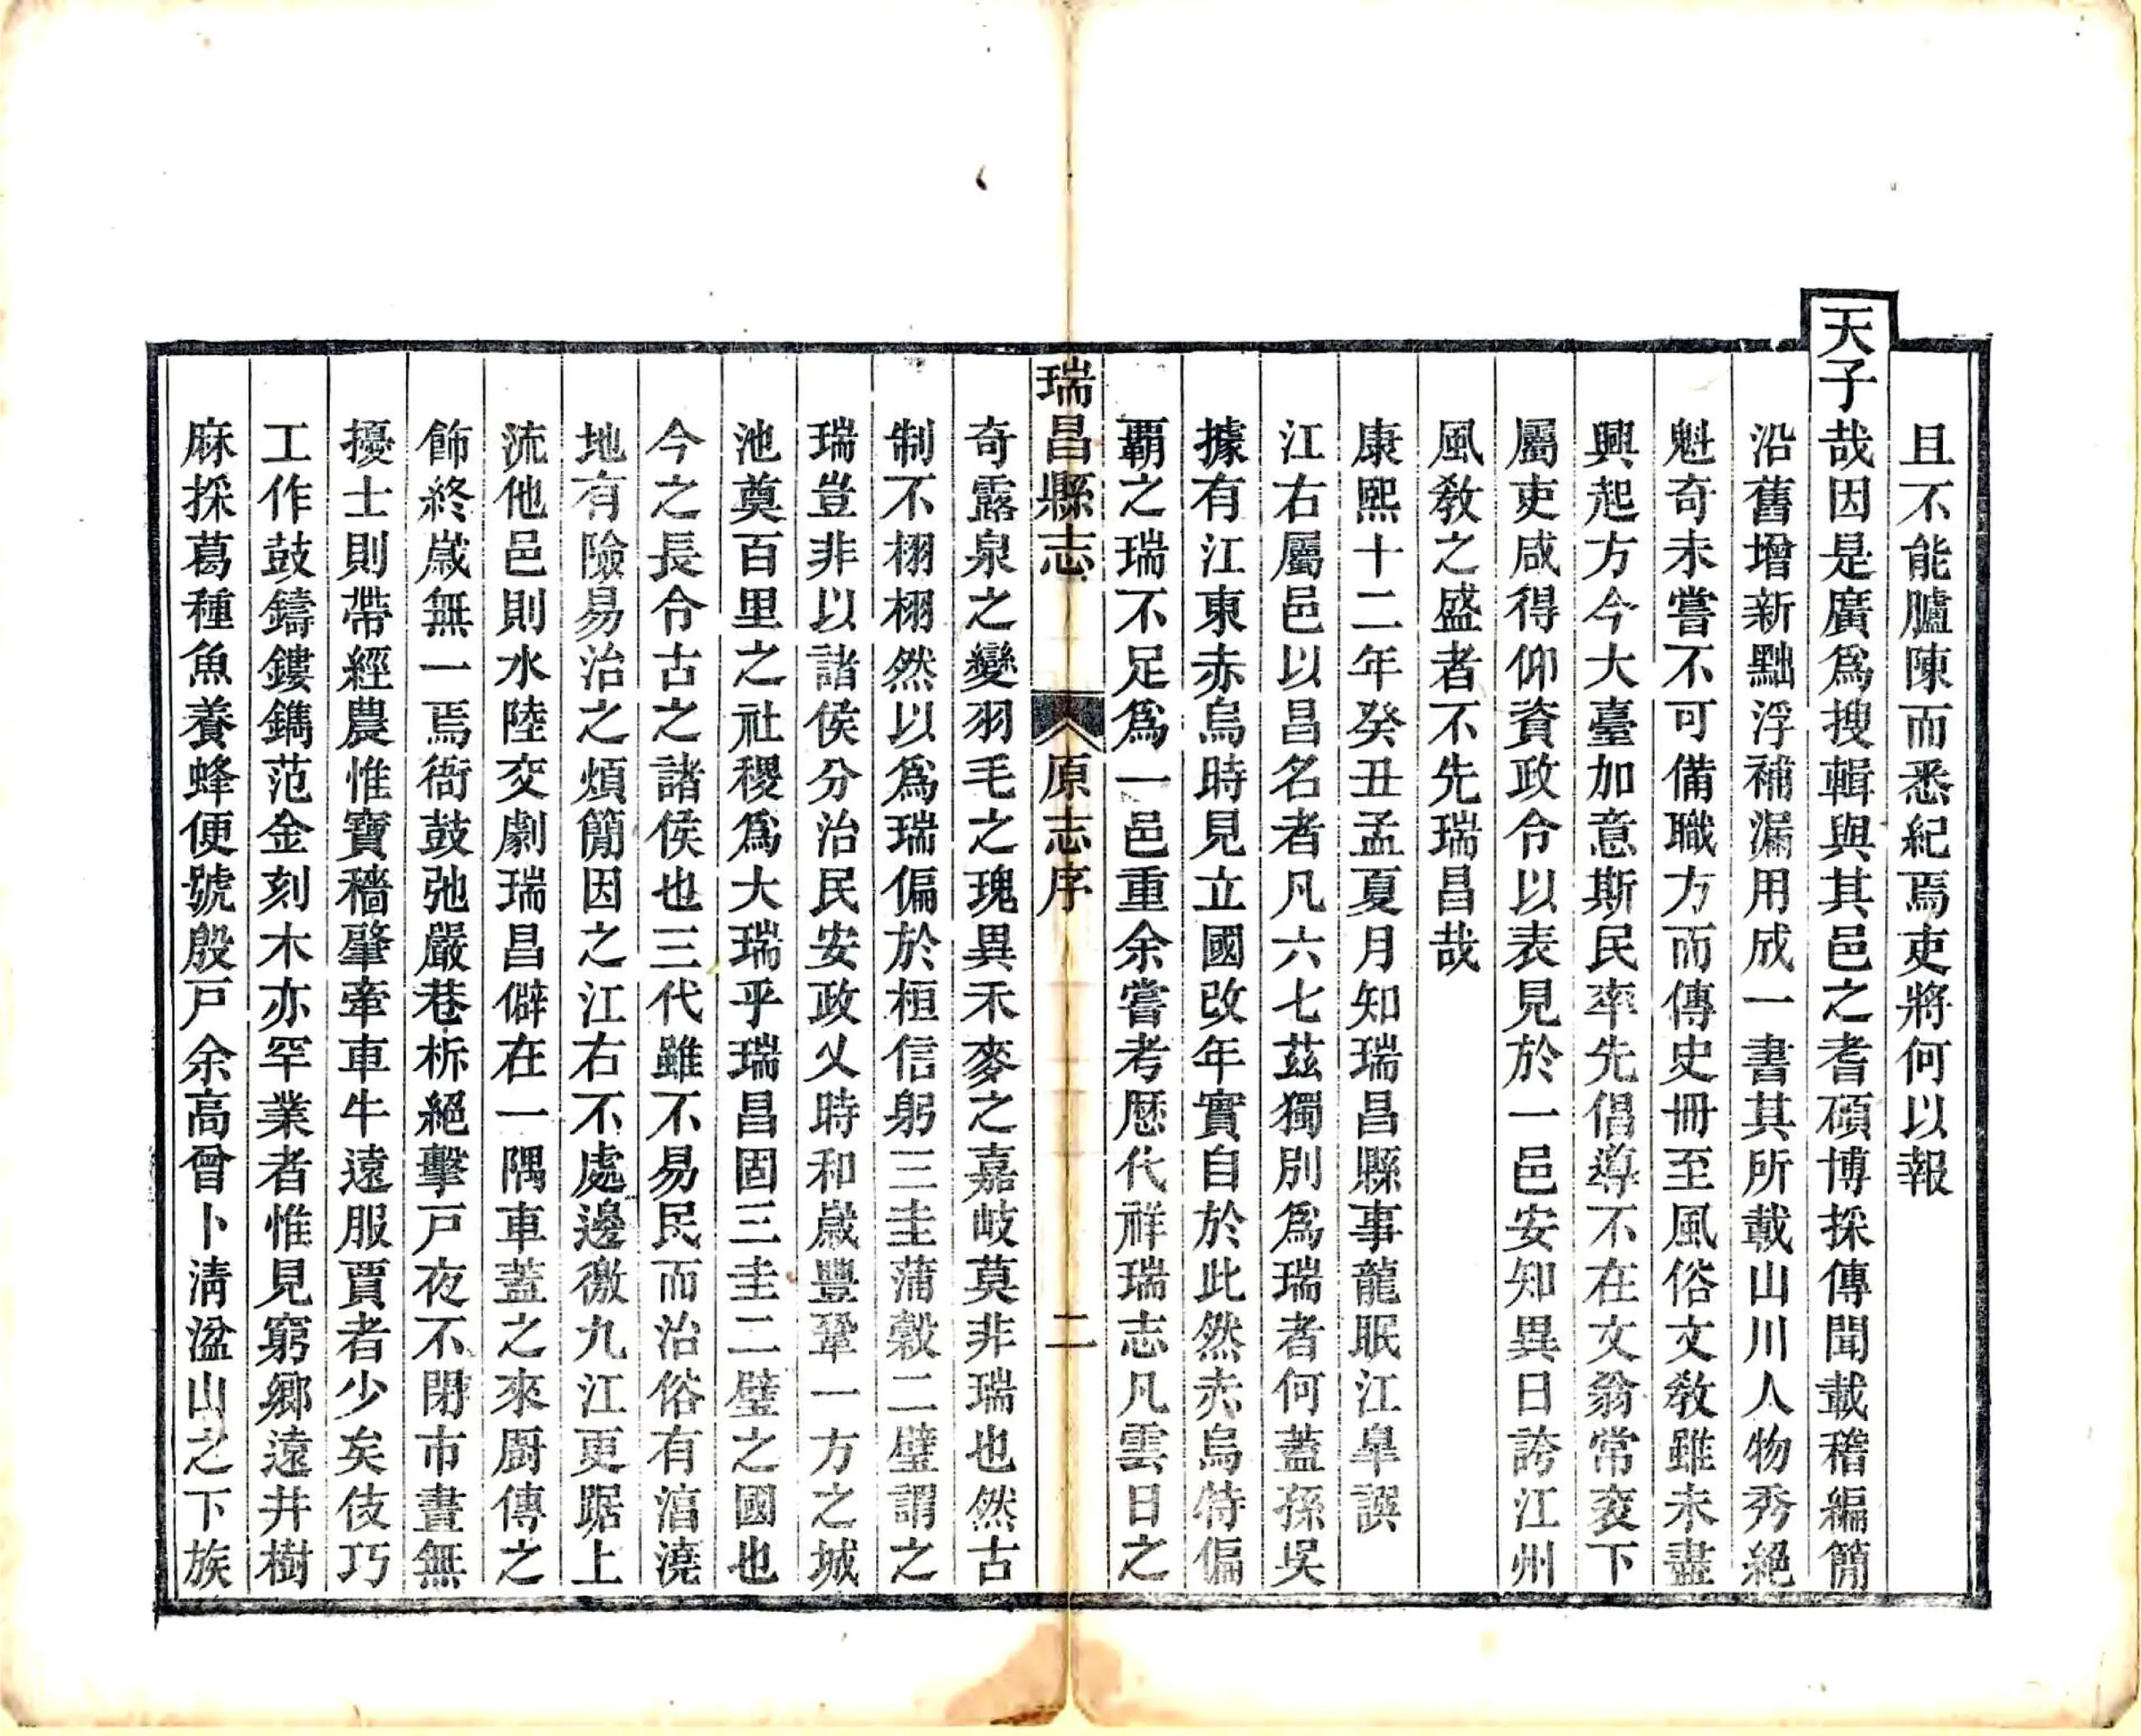 且不能臚陳而悉紀焉吏將何以報
天子哉因是廣爲搜輯與其邑之耆碩博採傳聞載稽編簡
沿舊增新黜浮補漏用成一書其所載山川人物秀絕
魁奇未嘗不可備職方而傳史冊至風俗文教雖未盡
興起方今大臺加意斯民率先倡導不在文翁常袞下
屬吏咸得仰資政令以表見於一邑安知異日誇江州
風教之盛者不先瑞昌哉
康熙十二年癸丑孟夏月知瑞昌縣事龍眠江皐譔
江右屬邑以昌名者凡六七茲獨別爲瑞者何蓋孫吳
據有江東赤烏時見立國改年實自於此然赤烏特偏
覇之瑞不足爲一邑重余嘗考歷代祥瑞志凡雲日之
瑞昌縣志 原志序 二
奇露泉之變羽毛之瑰異禾麥之嘉岐莫非瑞也然古
制不栩栩然以爲瑞偏於桓信躬三圭蒲榖二璧謂之
瑞豈非以諸侯分治民安政乂時和歲豐鞏一方之城
池奠百里之社稷爲大瑞乎瑞昌固三圭二璧之國也
今之長令古之諸侯也三代雖不易民而治俗有湻澆
地有險易治之煩簡因之江右不處邊徼九江更踞上
流他邑則水陸交劇瑞昌僻在一隅車蓋之來廚傳之
飾終歲無一焉衙鼓弛嚴巷柝絕擊戸夜不閉市晝無
擾士則帶經農惟寶穡肇牽車牛遠服賈者少矣伎巧
工作鼓鑄鏤鐫范金刻木亦罕業者惟見窮鄉遠井樹
麻採葛種魚養蜂便號殷戸余高曾卜淸湓山之下族